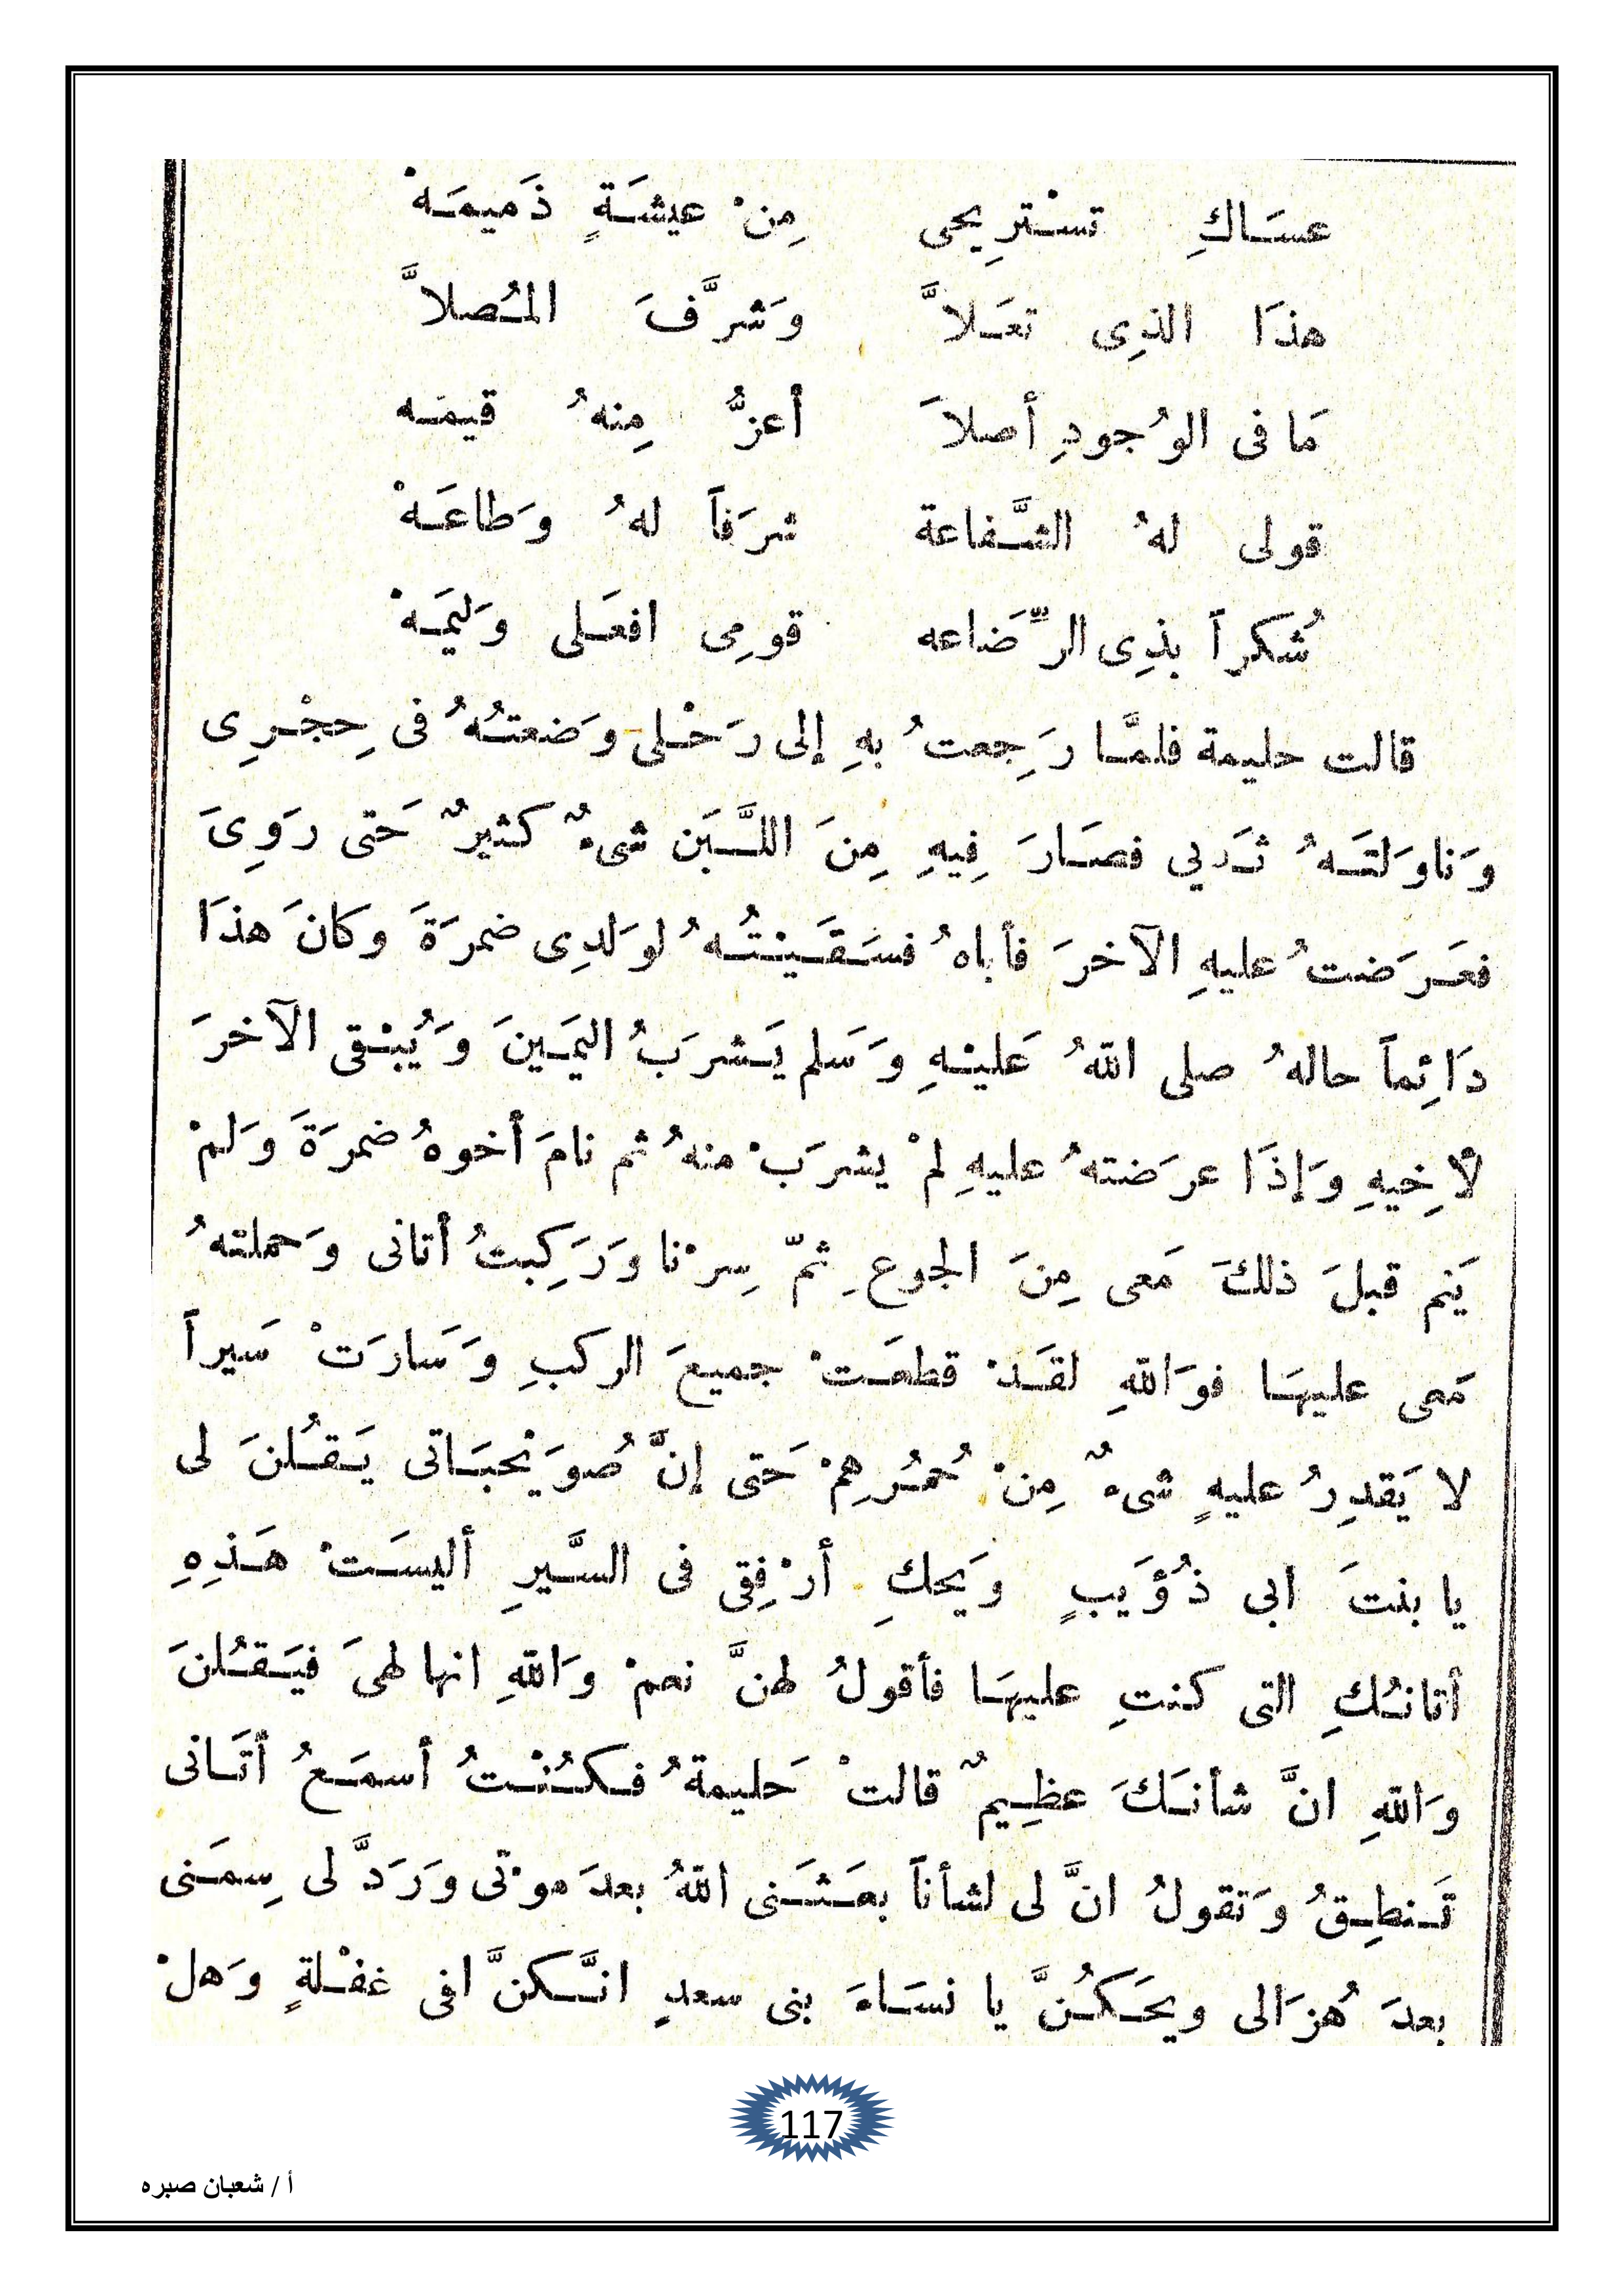 عسَاكِ تسْترِيحى مِنْ عيشَةٍ ذَميمَهْ
هذَا الذِى تعَلاَّ وَشرَّفَ المُصلاَّ
مَا فى الوُجودِ أصلاَ أعزُّ مِنهُ قيمَه
قولى لهُ الشَّفاعة شرَفاً لهُ وَطاعَهْ
شُكراً بذِى الرِّضَاعه قومِى افعَلى وَليمَهْ
قالت حليمة فلمَّا رَجِعتُ بهِ إلى رَحْلى وَضعتُهُ فى حِجْرِى
وَناوَلتَهُ ثَدبي فصَارَ فِيهِ مِنَ اللَّبَن شىءٌ كثيرٌ حَتى رَوِىَ
فعَرَضتُ عليهِ الآخرَ فأباهُ فسَقَيْتُهُ لوَلدِى ضمرَةَ وكانَ هذَا
دَائِماً حالهُ صلى اللهُ عَليْهِ وَسَلم يَشرَبُ اليَمَينَ وَيُبْقى الآخرَ
لأخِيهِ وَإذَا عرَضتهُ عليهِ لمْ يشرَبْ منهُ ثم نامَ أخوهُ ضمرَةَ وَلمْ
يَنم قبلَ ذلكَ مَعى مِنَ الجوعِ ثمّ سِرْنا وَرَكِبتُ أتانى وَحملتهُ
مَعى عليهَا فوَاللهِ لقَدْ قطعَتْ جميعَ الركبِ وَسَارَتْ سَيراً
لا يَقدِرُ عليهِ شىءٌ مِنْ حُمُرِهِمْ حَتى إنَّ صُوَيْحبَاتى يَقُلنَ لى
يا بنتَ ابى ذُؤَيبٍ وَيحكِ أرْفِقى فى السَّيرِ أليسَتْ هَذِهِ
أتانُكِ التى كنتِ عليهَا فأقولُ لهنَّ نعمْ وَاللهِ انها لهىَ فيَقُلنَ
وَاللهِ انَّ شأنَكَ عظِيمٌ قالتْ حَليمةُ فكُنْتُ أسمَعُ أتَانى
تَنطِقُ وَتقولُ انَّ لى لشأناً بعَثَنى اللهُ بعدَ موْتى وَرَدَّ لى سِمَنى
بعدَ هُزَالى ويحَكُنَّ يا نسَاءَ بنى سعدٍ انَّكنَّ افى غفْلةٍ وَهلْ
117
أ / شعبان صبره